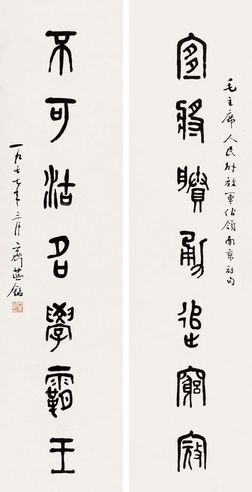 毛主席人民解放軍佔領南京詩句
宜將賸勇追窮寇
不可沽名學霸王
一九七七年三月齊燕銘